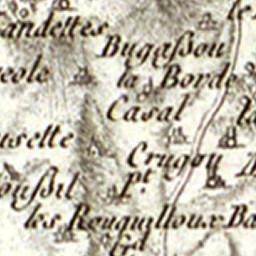 andettes
Bugaſsou
eole
la Borde
Casal
usette
Crugou
oussil
Pt
les Rouquilloux Ba